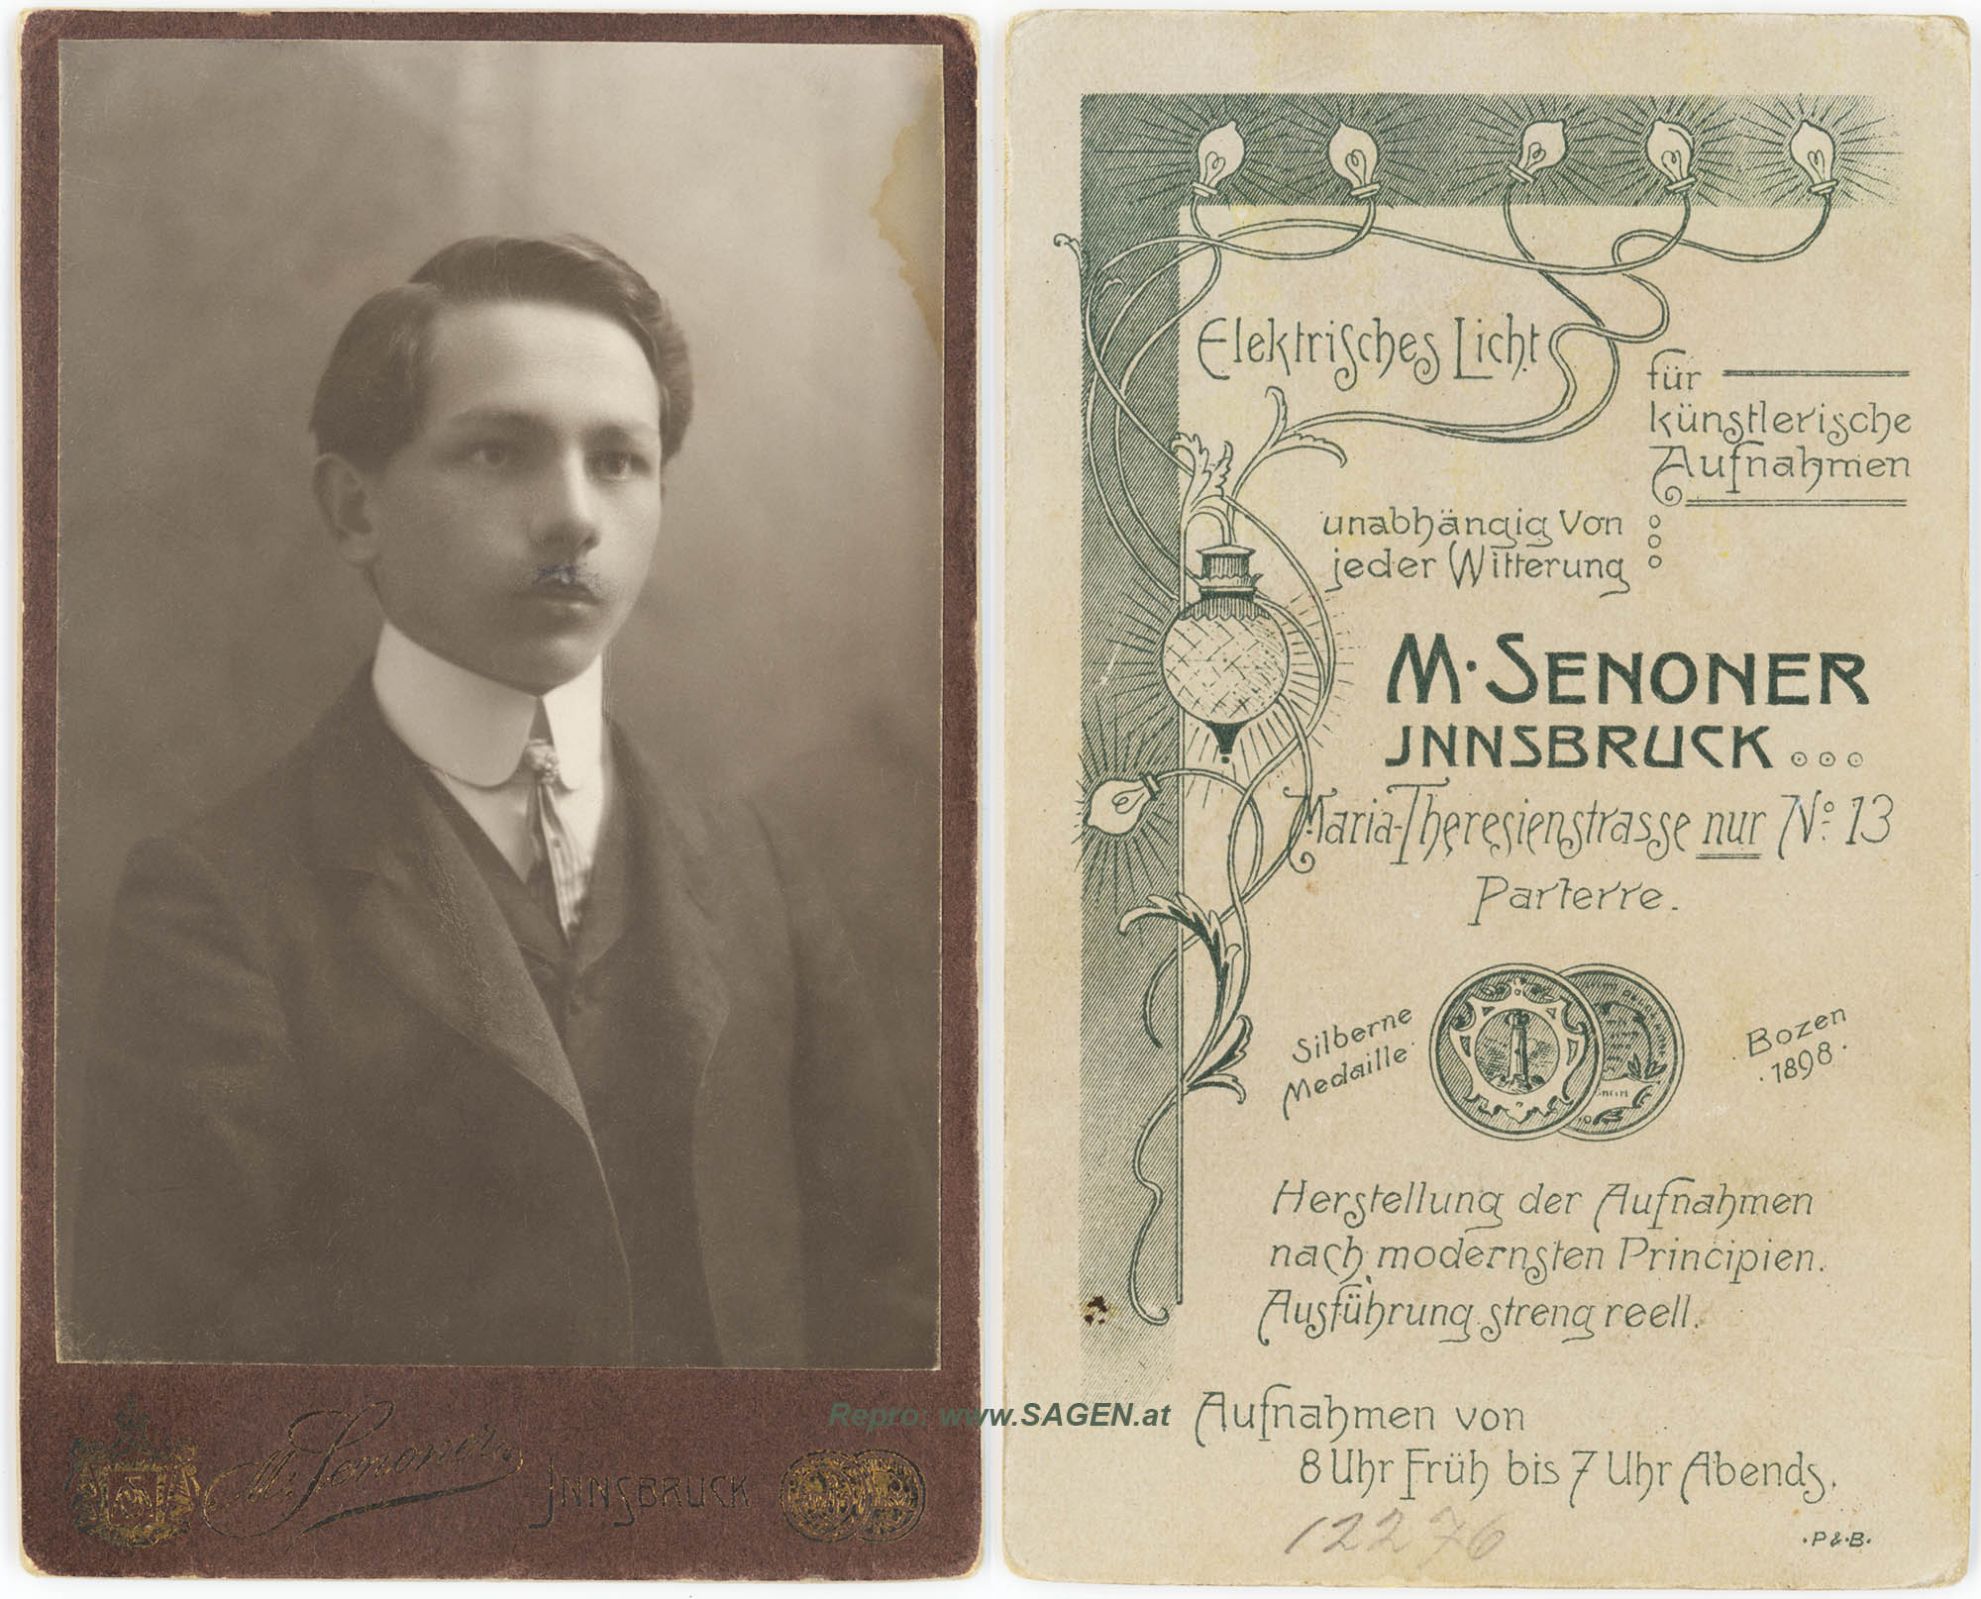 M. Senoner.
INNSBRUCK
Repro: www.SAGEN.at
Elektrisches Licht
für
künstlerische
Aufnahmen
unabhängig von
jeder Witterung
M. SENONER
JNNSBRUCK
Maria-Theresienstrasse nur No. 13
Parterre.
Silberne
Medaille
Bozen
1898.
Herstellung der Aufnahmen
nach modernsten Principien.
Ausführung streng reell.
Aufnahmen von
8 Uhr Früh bis 7 Uhr Abends.
12276
·P&·B·